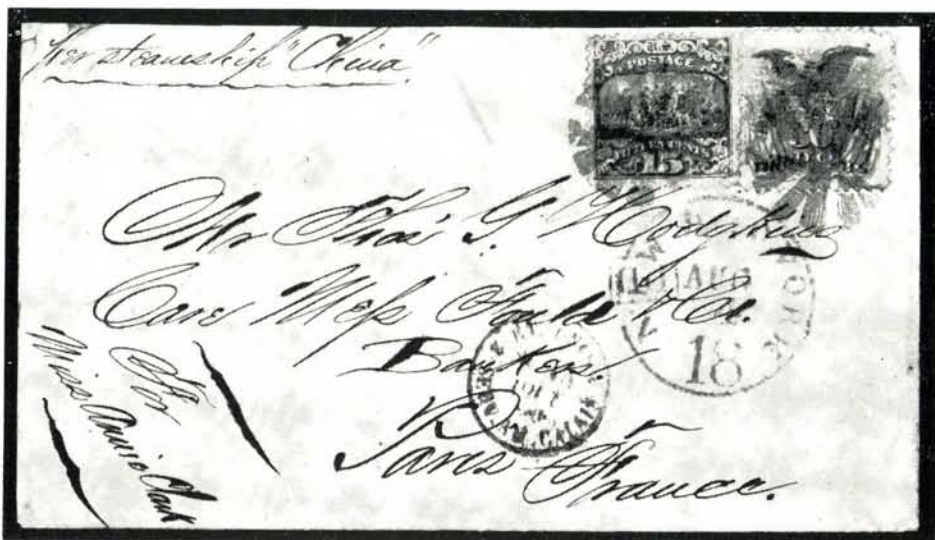 Per steamship "China"
POSTAGE
15
Mr Thos. G. Hodgkins
Care Mess Fould & Co.
Bankers.
Paris France.
For
Miss Annie Clark
AUG
18
CALAIS